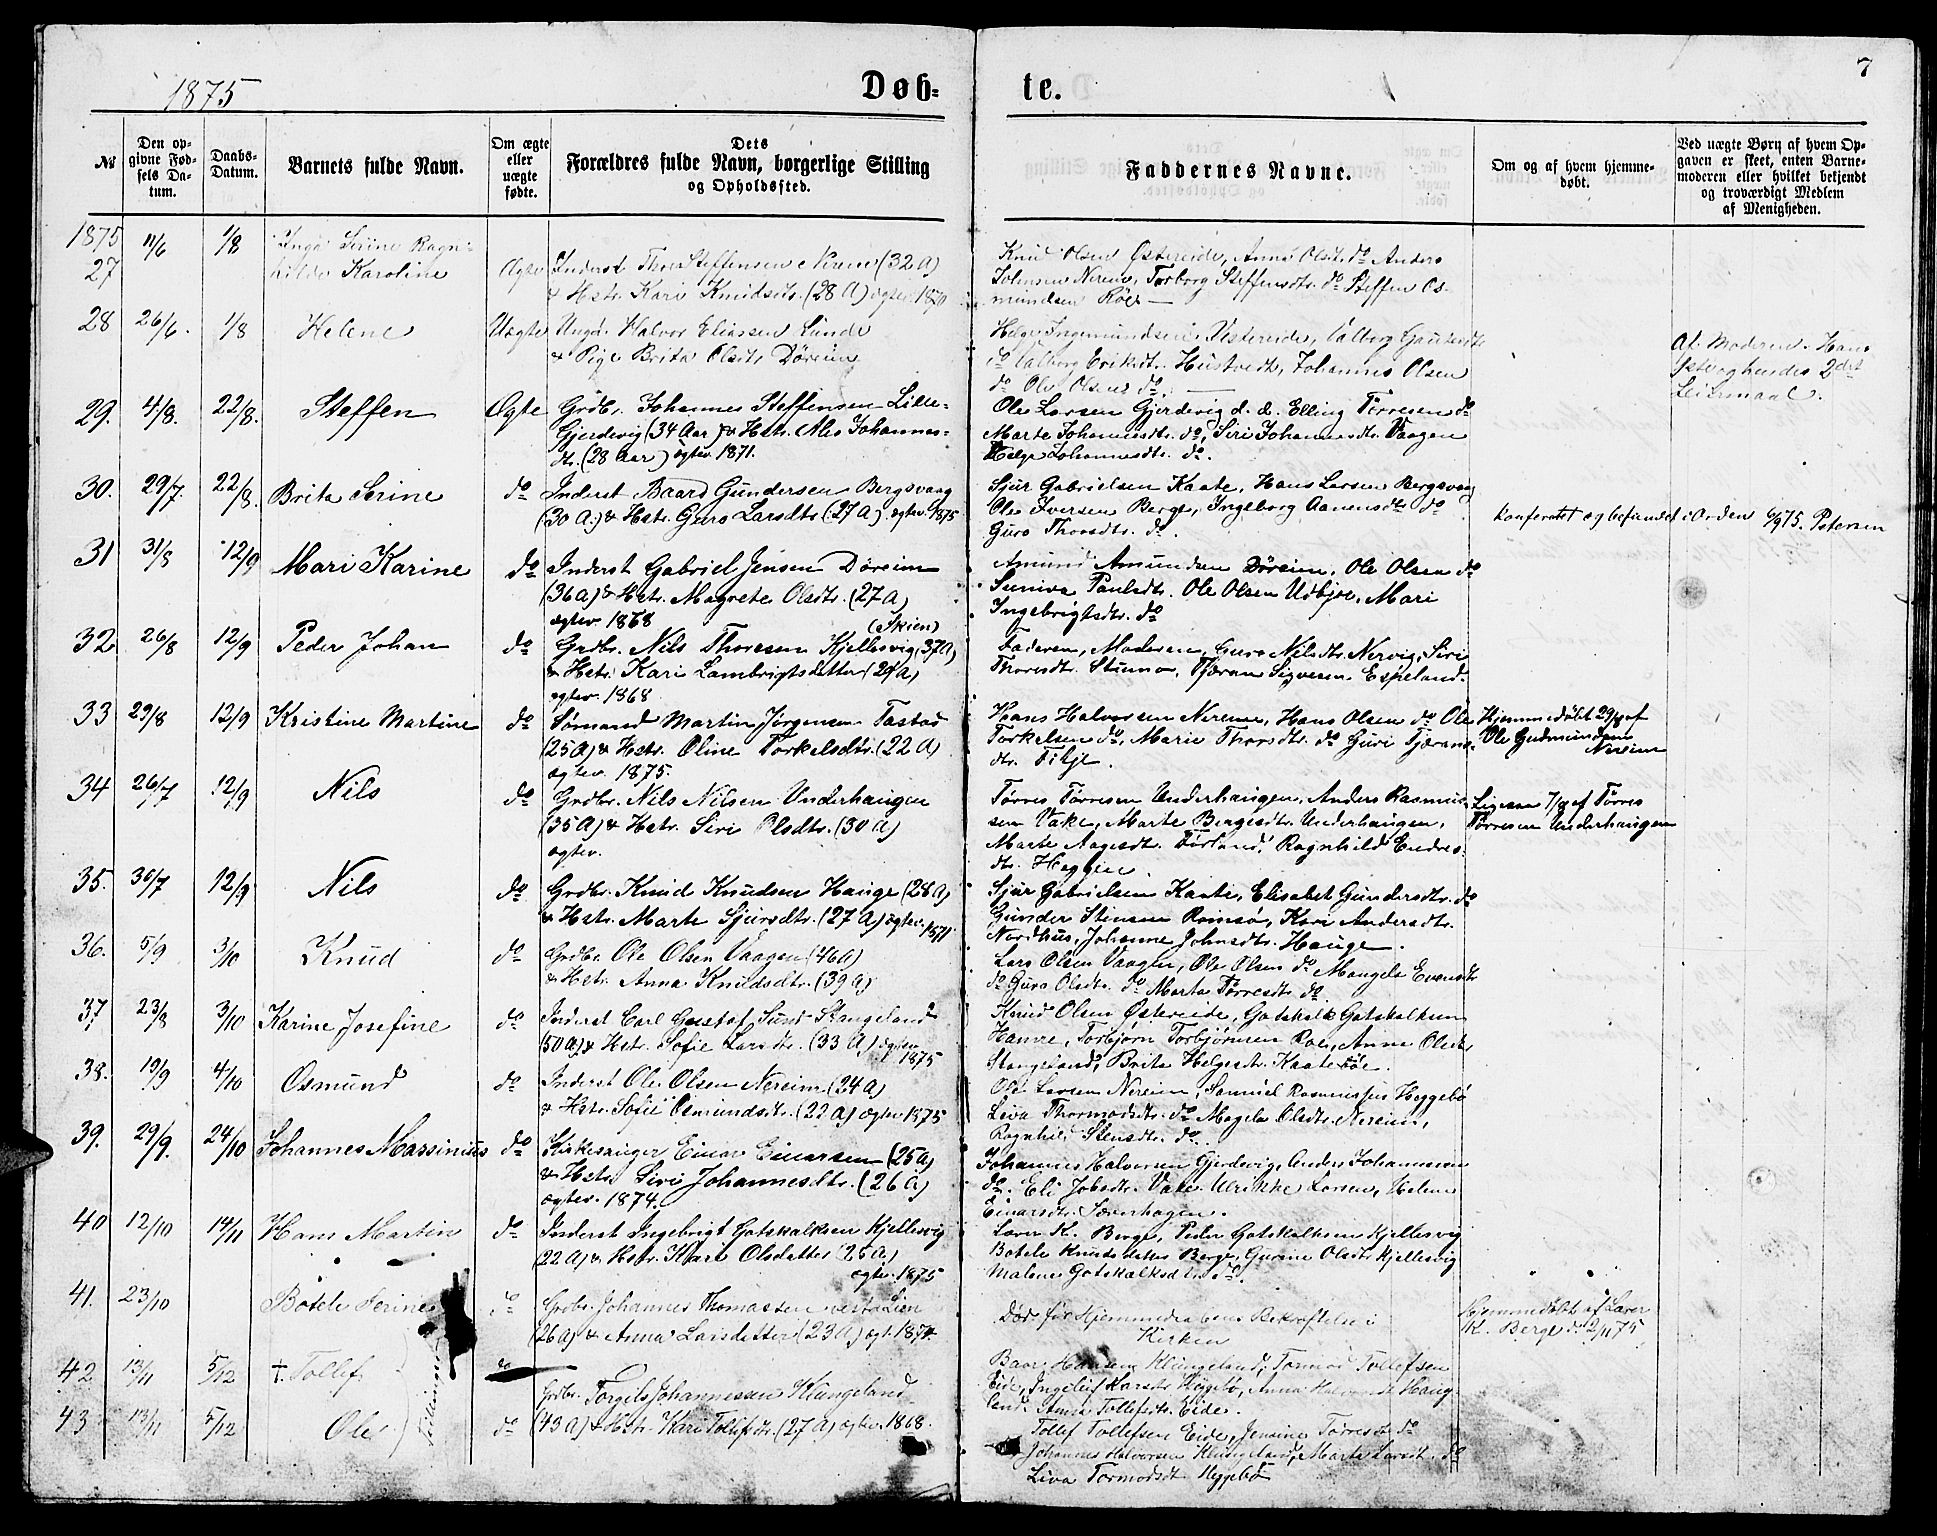 1875
Døb-
te.
7
№
Den op-
givne Fød-
sels Da-
tum.
Daabs-
Datum.
Barnets fulde Navn.
Om ægte
eller
uægte
fødte.
Dets
Forældres fulde Navn, borgerlige Stilling
og Opholdssted.
Faddernes Navne.
Om og af hvem hjemme-
døbt.
Ved uægte Børn af hvem Op-
gaven er skeet, enten Barne-
moderen eller hvilket bekjendt
og troværdigt Medlem
af Menigheden.
1875
27 11/6 1/8 Inga Serine Ragn-
hilde Karoline Ægte Inderst Thore Steffensen Nereim (32 A)
& Hstr. Kari Knudsdtr. (28 A) ægtev. 1870
Knud Olsen Østereide, Anna Olsdtr. do Anders
Johnsen Nereim, Torborg Steffensdtr. do Steffen Os-
mundsen Röe
28 26/6. 1/8 Helene Uægte Ungk. Halvor Eliassen Lunde
& Pige Brita Olsdtr. Döreim
Helge Ingemundsen Vestereide, Valborg Gautesdtr
do Valborg Eriksdtr. Hustvedt, Johannes Olsen
do Ole Olsen do
Af Moderen. Hans
første og hendes 2det
Leiermaal.
29. 4/8. 22/8. Steffen Ægte Grdbr. Johannes Steffensen Lille-
Gjerdevig (34 Aar) & Hstr. Ales Johannes-
dtr. (28 Aar) ægtev. 1871.
Ole Larsen Gjerdevig d. æ. Elling Tørresen do
Marte Johannesdtr. do, Siri Johannesdtr. Vaagen
Helge Johannesdtr. do.
30. 29/7. 22/8. Brita Serine do Inderst Baard Gundersen Bergsvaag
(30 A.) & Hstr. Guro Larsdtr (27 A). ægtev. 1875
Sjur Gabrielsen Kaate, Hans Larsen Bergsvaag
Ole Iversen Berge, Ingeborg Aanensdtr do
Guro Thorsdtr. do.
Konfereret og befundet i Orden 6/9 75. Petersen
31 31/8 12/9 Mari Karine do Inderst Gabriel Jensen Döreim
(36 A) & Hstr. Magrete Olsdtr. (27 A)
ægtev. 1868
Amund Amundsen Döreim, Ole Olsen do
Suniva Paulsdtr. Ole Olsen Udbjoe, Mari
Ingebrigtsdtr. do
32 26/8 12/9 Peder Johan do (Skien)
Grdbr. Nils Thoresen Kjellesvig (37A)
& Hstr. Kari Lambrigtsdatter (29 A)
ægtev. 1868
Faderen, Moderen, Guro Nilsdtr. Nervig, Siri
Thorsdtr. Stumo, Tjæran Sigvesen Espeland.
33 29/8 12/9 Kristine Martine do Sømand Martin Jørgensen Tastad
(25 A) & Hstr. Oline Torkelsdtr. (22 A)
ægtev. 1875.
Hans Halvorsen Nereim, Hans Olsen do Ole
Torkelsen do, Marie Thorsdtr. do Guri Tjærans-
dtr. Titje.
Hjemmedøbt 29/8 af
Ole Gudmundsen
Nereim
34 26/7 12/9 Nils do Grdbr. Nils Nilsen Underhaugen
(35 A) & Hstr. Siri Olsdtr. (30 A)
ægtev.
Tørres Tørresen Underhaugen, Anders Rasmus-
sen Vake, Marte Bergesdtr. Underhaugen,
Marte Aagesdtr.Førland, Ragnhild Endres-
dtr. Heggen.
Ligesaa 7/8 af Tørres
Tørresen Underhaugen
35. 30/7 12/9 Nils do Grdbr. Knud Knudsen Hauge (28 A)
& Hstr. Marte Sjursdtr. (27 A) ægtev. 1871
Sjur Gabrielsen Kaate, Elisabet Gundersdtr. do
Gunder Stensen Ramsø, Kari Andersdtr.
Nordhus, Johanne Johnsdtr. Hauge.
36. 5/9 3/10 Knud do Grdbr. Ole Olsen Vaagen (46 A)
& Hstr. Anna Knudsdtr. (39 A)
Lars Olsen Vaagen, Ole Olsen do Mangele Evensdtr
do Guro Olsdtr. do Marta Tørresdtr. do
37 23/8 3/10 Karine Josefine do Inderst Carl Gustaf Sund Stangeland
(50 A) & Hstr. Sofie Larsdtr. (33 A) ægtev. 1875
Knud Olsen Østereide, Gotskalk Gotskalksen
Hamre, Torbjørn Torbjørnsen Roe, Anna Olsdtr,
Stangeland, Brita Helgesdtr. Kaatebøe.
38. 19/9 4/10 Osmund do Inderst Ole Olsen Nereim (24 A)
& Hstr. Sofie Osmundsdtr. (22 A) ægtev. 1875
Ole Larsen Nereim, Samuel Rasmussen Heggebø
Liva Thormodsdtr. do Magela Olsdtr. Nereim,
Ragnhild Stensdtr. do.
39. 29/9. 24/10 Johannes Massinius do Kirkesanger Einar Einarsen (25 A)
& Hstr. Siri Johannesdtr. (26 A)
ægtev. 1874.
Johannes Halvorsen Gjerdevig, Anders Johannesen
do. Eli Jobsdtr. Vake Ulrikke Larsen, Helene
Einarsdtr.
40 12/10 14/11 Hans Martin do Inderst Ingebrigt Gotskalksen Kjellesvig
(22 A) & Hstr. Kari Olsdatter (25 A)
ægtev. 1875
Lærer K. Berge, Peder Gotskalksen Kjellesvig
Botele Knudsdatter Berge, Gurine Olsdtr. Kjellesvig
Malene Gotskalksdtr. do.
41. 23/10 Botele Serine do Grdbr. Johannes Thomassen Lien
(26 A) & Anna Larsdatter (23 A) ægt. 1874
Død før Hjemmedaabens Bekræftelse i
Kirken
Hjemmedøbt af Lærer
K. Berge d. 2/11 75
42 13/11 5/12 + Tollef do
Tvillinger
Grdbr. Torgils Johannessen Klungeland
Baar Hansen Klungeland, Tormod Tollefsen
Eide, Ingeleif Larsdtr. Heggebø, Anna Halvorsdtr. Haug-
land. Anna Tollefsdtr. Eide.
43 13/11 5/12 Ole do (43 A) & Hstr. Kari Tollefsdtr. (27 A) ægtev. 1868.
Tollef Tollefsen Eide, Jensine Tørresdtr do
Johannes Halvorsen Klungeland, Marta Larsdtr. do
Liva Tormodsdtr. Heggebø